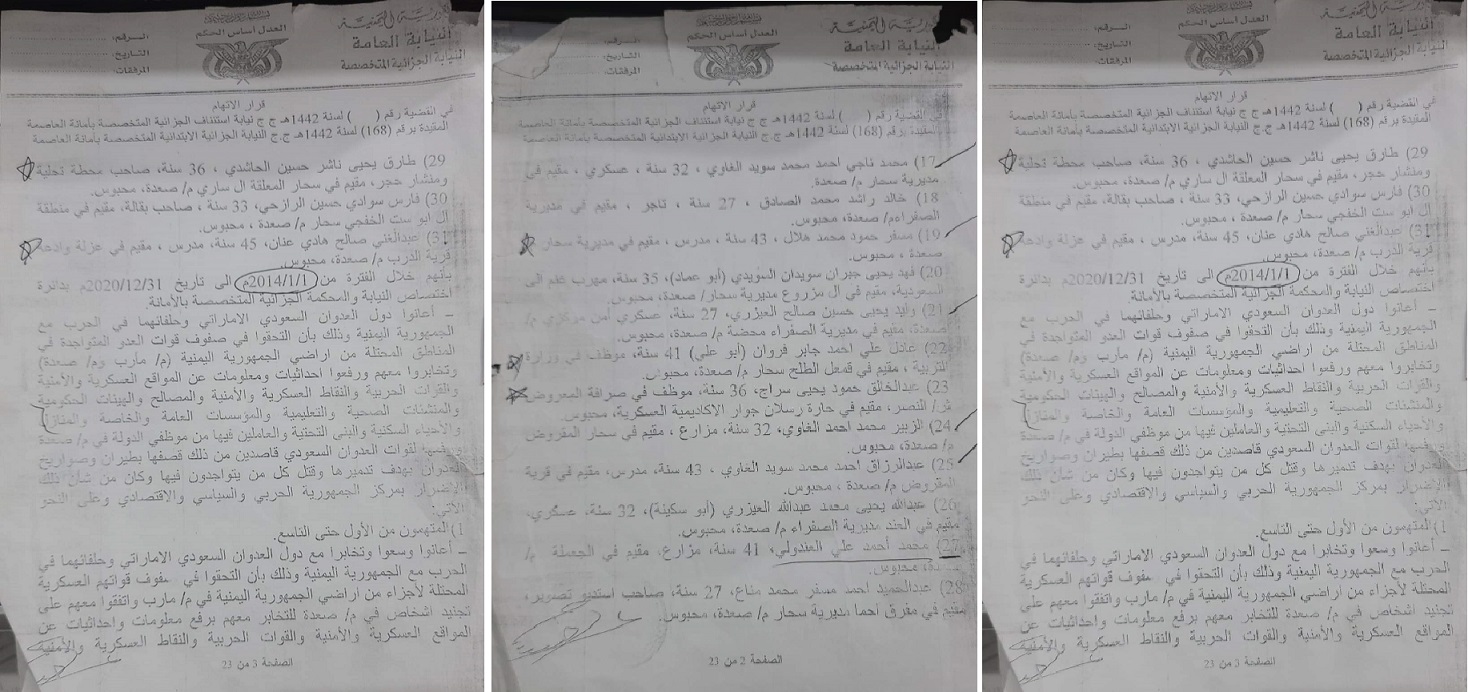 العدل أساس الحكم
النيابة العامة
النيابة الجزائية المتخصصة
الرقم:
التاريخ:
المرفقات:
قرار الاتهام
في القضية رقم ( ) لسنة 1442هـ ج ج نيابة استئناف الجزائية المتخصصة بأمانة العاصمة
المقيدة برقم (168) لسنة 1442هـ ج.ج النيابة الجزائية الابتدائية المتخصصة بأمانة العاصمة
29) طارق يحيى ناشر حسين الحاشدي ، 36 سنة، صاحب محطة تحلية
ومنشار حجر، مقيم في سحار المعلقة ال ساري م/ صعدة، محبوس.
30) فارس سوادي حسين الرازحي، 33 سنة ، صاحب بقالة، مقيم في منطقة
ال ابو ست الخفجي سحار م/ صعدة ، محبوس.
31) عبدالغني صالح هادي عنان، 45 سنة، مدرس ، مقيم في عزلة وادعة
قرية الدرب م/ صعدة، محبوس.
بأنهم خلال الفترة من 2014/1/1م الى تاريخ 2020/12/31م بدائرة
اختصاص النيابة والمحكمة الجزائية المتخصصة بالأمانة.
ـ أعانوا دول العدوان السعودي الاماراتي وحلفائهما في الحرب مع
الجمهورية اليمنية وذلك بأن التحقوا في صفوف قوات العدو المتواجدة في
المناطق المحتلة من اراضي الجمهورية اليمنية (م/ مأرب وم/ صعدة)
وتخابروا معهم ورفعوا احداثيات ومعلومات عن المواقع العسكرية والأمنية
والقوات الحربية والنقاط العسكرية والأمنية والمصالح والهيئات الحكومية
والمنشئات الصحية والتعليمية والمؤسسات العامة والخاصة والمنازل
والأحياء السكنية والبنى التحتية والعاملين فيها من موظفي الدولة في م/ صعدة
لقوات العدوان السعودي قاصدين من ذلك قصفها بطيران وصواريخ
العدوان بهدف تدميرها وقتل كل من يتواجدون فيها وكان من شأن ذلك
الإضرار بمركز الجمهورية الحربي والسياسي والاقتصادي وعلى النحو
الآتي:
1) المتهمون من الأول حتى التاسع.
ـ أعانوا وسعوا وتخابرا مع دول العدوان السعودي الاماراتي وحلفائهما في
الحرب مع الجمهورية اليمنية وذلك بأن التحقوا في صفوف قواتهم العسكرية
المحتلة لأجزاء من أراضي الجمهورية اليمنية في م/ مارب واتفقوا معهم على
تجنيد اشخاص في م/ صعدة للتخابر معهم برفع معلومات واحداثيات عن
المواقع العسكرية والأمنية والقوات الحربية والنقاط العسكرية والأمنية
الصفحة 3 من 23
العدل أساس الحكم
النيابة العامة
النيابة الجزائية المتخصصة
الرقم:
التاريخ:
المرفقات:
قرار الاتهام
في القضية رقم ( ) لسنة 1442هـ ج ج نيابة استئناف الجزائية المتخصصة بأمانة العاصمة
المقيدة برقم (168) لسنة 1442هـ ج.ج النيابة الجزائية الابتدائية المتخصصة بأمانة العاصمة
17) محمد ناجي احمد محمد سويد الغاوي ، 32 سنة ، عسكري ، مقيم في
مديرية سحار م/ صعدة.
18) خالد راشد محمد الصادق ، 27 سنة ، تاجر ، مقيم في مديرية
الصفراء م/ صعدة، محبوس.
19) مسفر حمود محمد هلال ، 43 سنة ، مدرس ، مقيم في مديرية سحار
صعدة ، محبوس.
20) فهد يحيى جبران سويدان المؤيدي (أبو عماد)، 35 سنة، مهرب
السعودية، مقيم في ال مزروع مديرية سحار/ صعدة، محبوس.
21) وليد يحيى حسين صالح العيزري، 27 سنة، عسكري أمن مركزي م/
صعدة، مقيم في مديرية الصفراء محضة م/ صعدة، محبوس.
22) عادل علي احمد جابر فروان (أبو علي) 41 سنة، موظف في وزارة
التربية ، مقيم في قمعل الطلح سحار م/ صعدة، محبوس.
23) عبدالخالق حمود يحيى سراج، 36 سنة، موظف في صرافة المعروض
مقيم في حارة رسلان جوار الاكاديمية العسكرية، محبوس.
24) الزبير محمد احمد الغاوي، 32 سنة، مزارع ، مقيم في سحار المقروض
م/ صعدة، محبوس.
25) عبدالرزاق احمد محمد سويد الغاوي ، 43 سنة، مدرس، مقيم في قرية
المقروض م/ صعدة ، محبوس.
26) عبدالله يحيى محمد عبدالله العيزري (أبو سكينة)، 32 سنة، عسكري،
مقيم في العند مديرية الصفراء م/ صعدة، محبوس.
27) محمد أحمد علي المندولي، 41 سنة، مزارع، مقيم في الجملة م/
صعدة، محبوس.
28) عبدالحميد احمد مسفر محمد مناع، 27 سنة، صاحب استديو تصوير،
مقيم في مفرق احما مديرية سحار م/ صعدة، محبوس.
الصفحة 2 من 23
العدل أساس الحكم
النيابة العامة
النيابة الجزائية المتخصصة
الرقم:
التاريخ:
المرفقات:
قرار الاتهام
في القضية رقم ( ) لسنة 1442هـ ج ج نيابة استئناف الجزائية المتخصصة بأمانة العاصمة
المقيدة برقم (168) لسنة 1442هـ ج.ج النيابة الجزائية الابتدائية المتخصصة بأمانة العاصمة
29) طارق يحيى ناشر حسين الحاشدي ، 36 سنة، صاحب محطة تحلية
ومنشار حجر، مقيم في سحار المعلقة ال ساري م/ صعدة، محبوس.
30) فارس سوادي حسين الرازحي، 33 سنة ، صاحب بقالة، مقيم في منطقة
ال ابو ست الخفجي سحار م/ صعدة ، محبوس.
31) عبدالغني صالح هادي عنان، 45 سنة، مدرس ، مقيم في عزلة وادعة
قرية الدرب م/ صعدة، محبوس.
بأنهم خلال الفترة من 2014/1/1م الى تاريخ 2020/12/31م بدائرة
اختصاص النيابة والمحكمة الجزائية المتخصصة بالأمانة.
ـ أعانوا دول العدوان السعودي الاماراتي وحلفائهما في الحرب مع
الجمهورية اليمنية وذلك بأن التحقوا في صفوف قوات العدو المتواجدة في
المناطق المحتلة من اراضي الجمهورية اليمنية (م/ مأرب وم/ صعدة)
وتخابروا معهم ورفعوا احداثيات ومعلومات عن المواقع العسكرية والأمنية
والقوات الحربية والنقاط العسكرية والأمنية والمصالح والهيئات الحكومية
والمنشئات الصحية والتعليمية والمؤسسات العامة والخاصة والمنازل
والأحياء السكنية والبنى التحتية والعاملين فيها من موظفي الدولة في م/ صعدة
لقوات العدوان السعودي قاصدين من ذلك قصفها بطيران وصواريخ
العدوان بهدف تدميرها وقتل كل من يتواجدون فيها وكان من شأن ذلك
الإضرار بمركز الجمهورية الحربي والسياسي والاقتصادي وعلى النحو
الآتي:
1) المتهمون من الأول حتى التاسع.
ـ أعانوا وسعوا وتخابرا مع دول العدوان السعودي الاماراتي وحلفائهما في
الحرب مع الجمهورية اليمنية وذلك بأن التحقوا في صفوف قواتهم العسكرية
المحتلة لأجزاء من أراضي الجمهورية اليمنية في م/ مارب واتفقوا معهم على
تجنيد اشخاص في م/ صعدة للتخابر معهم برفع معلومات واحداثيات عن
المواقع العسكرية والأمنية والقوات الحربية والنقاط العسكرية والأمنية
الصفحة 3 من 23